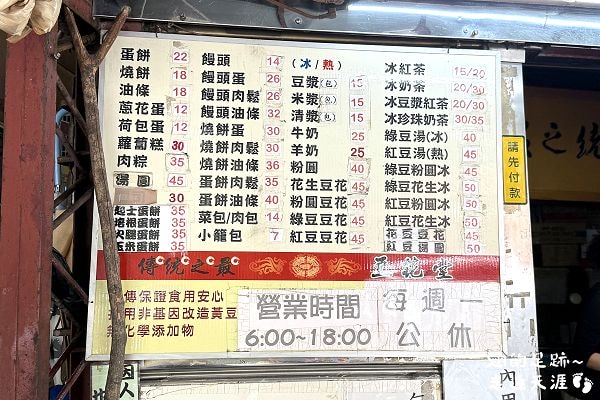 蛋餅 22
燒餅 18
油條 18
蔥花蛋 12
荷包蛋 12
蘿蔔糕 30
肉粽 35
湯圓 45
30
起士蛋餅 35
培根蛋餅 35
火腿蛋餅 35
玉米蛋餅 35
饅頭 14
饅頭蛋 26
饅頭肉鬆 26
饅頭油條 32
燒餅蛋 30
燒餅肉鬆 30
燒餅油條 36
蛋餅肉鬆 35
蛋餅油條 40
菜包/肉包 14
小籠包 7
(冰/熱)
豆漿(包) 15
米漿(包) 15
清漿(包) 15
牛奶 25
羊奶 25
粉圓 40
花生豆花 45
粉圓豆花 45
綠豆豆花 45
紅豆豆花 45
冰紅茶 15/20
冰奶茶 20/30
冰豆漿紅茶 20/30
冰珍珠奶茶 30/35
綠豆湯(冰) 40
紅豆湯(熱) 45
綠豆粉圓冰 45
綠豆花生冰 50
紅豆粉圓冰 45
紅豆花生冰 50
花豆豆花 45
紅豆湯圓 50
請先付款
傳統之最
傳保證食用安心
用非基因改造黃豆
化學添加物
營業時間
6:00~18:00
每週一
公休
內用
足跡~
天涯